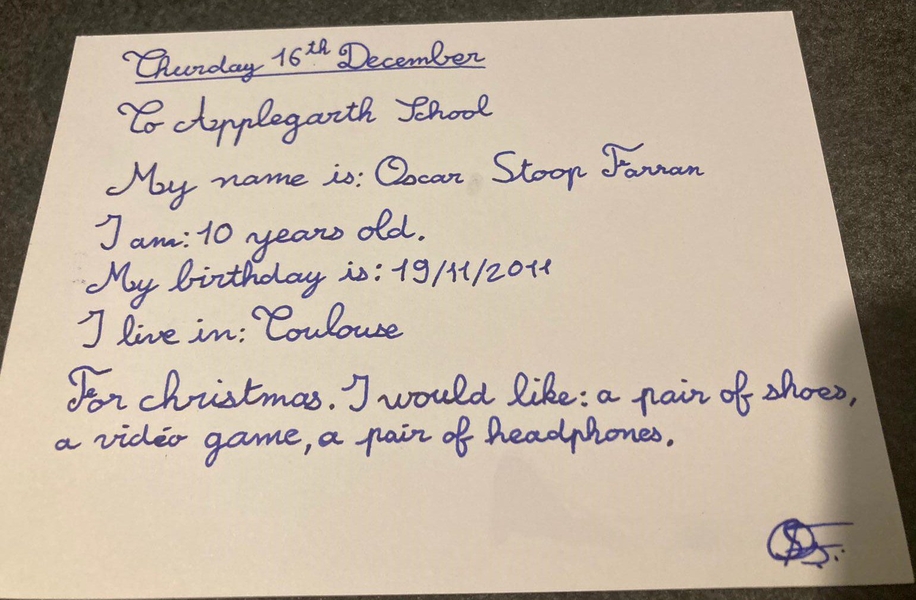 Thurday 16th December
To Applegarth School
My name is: Oscar Stoop Farran
I am: 10 years old.
My birthday is: 19/11/2011
I live in: Toulouse
For christmas. I would like: a pair of shoes,
a vidéo game, a pair of headphones.